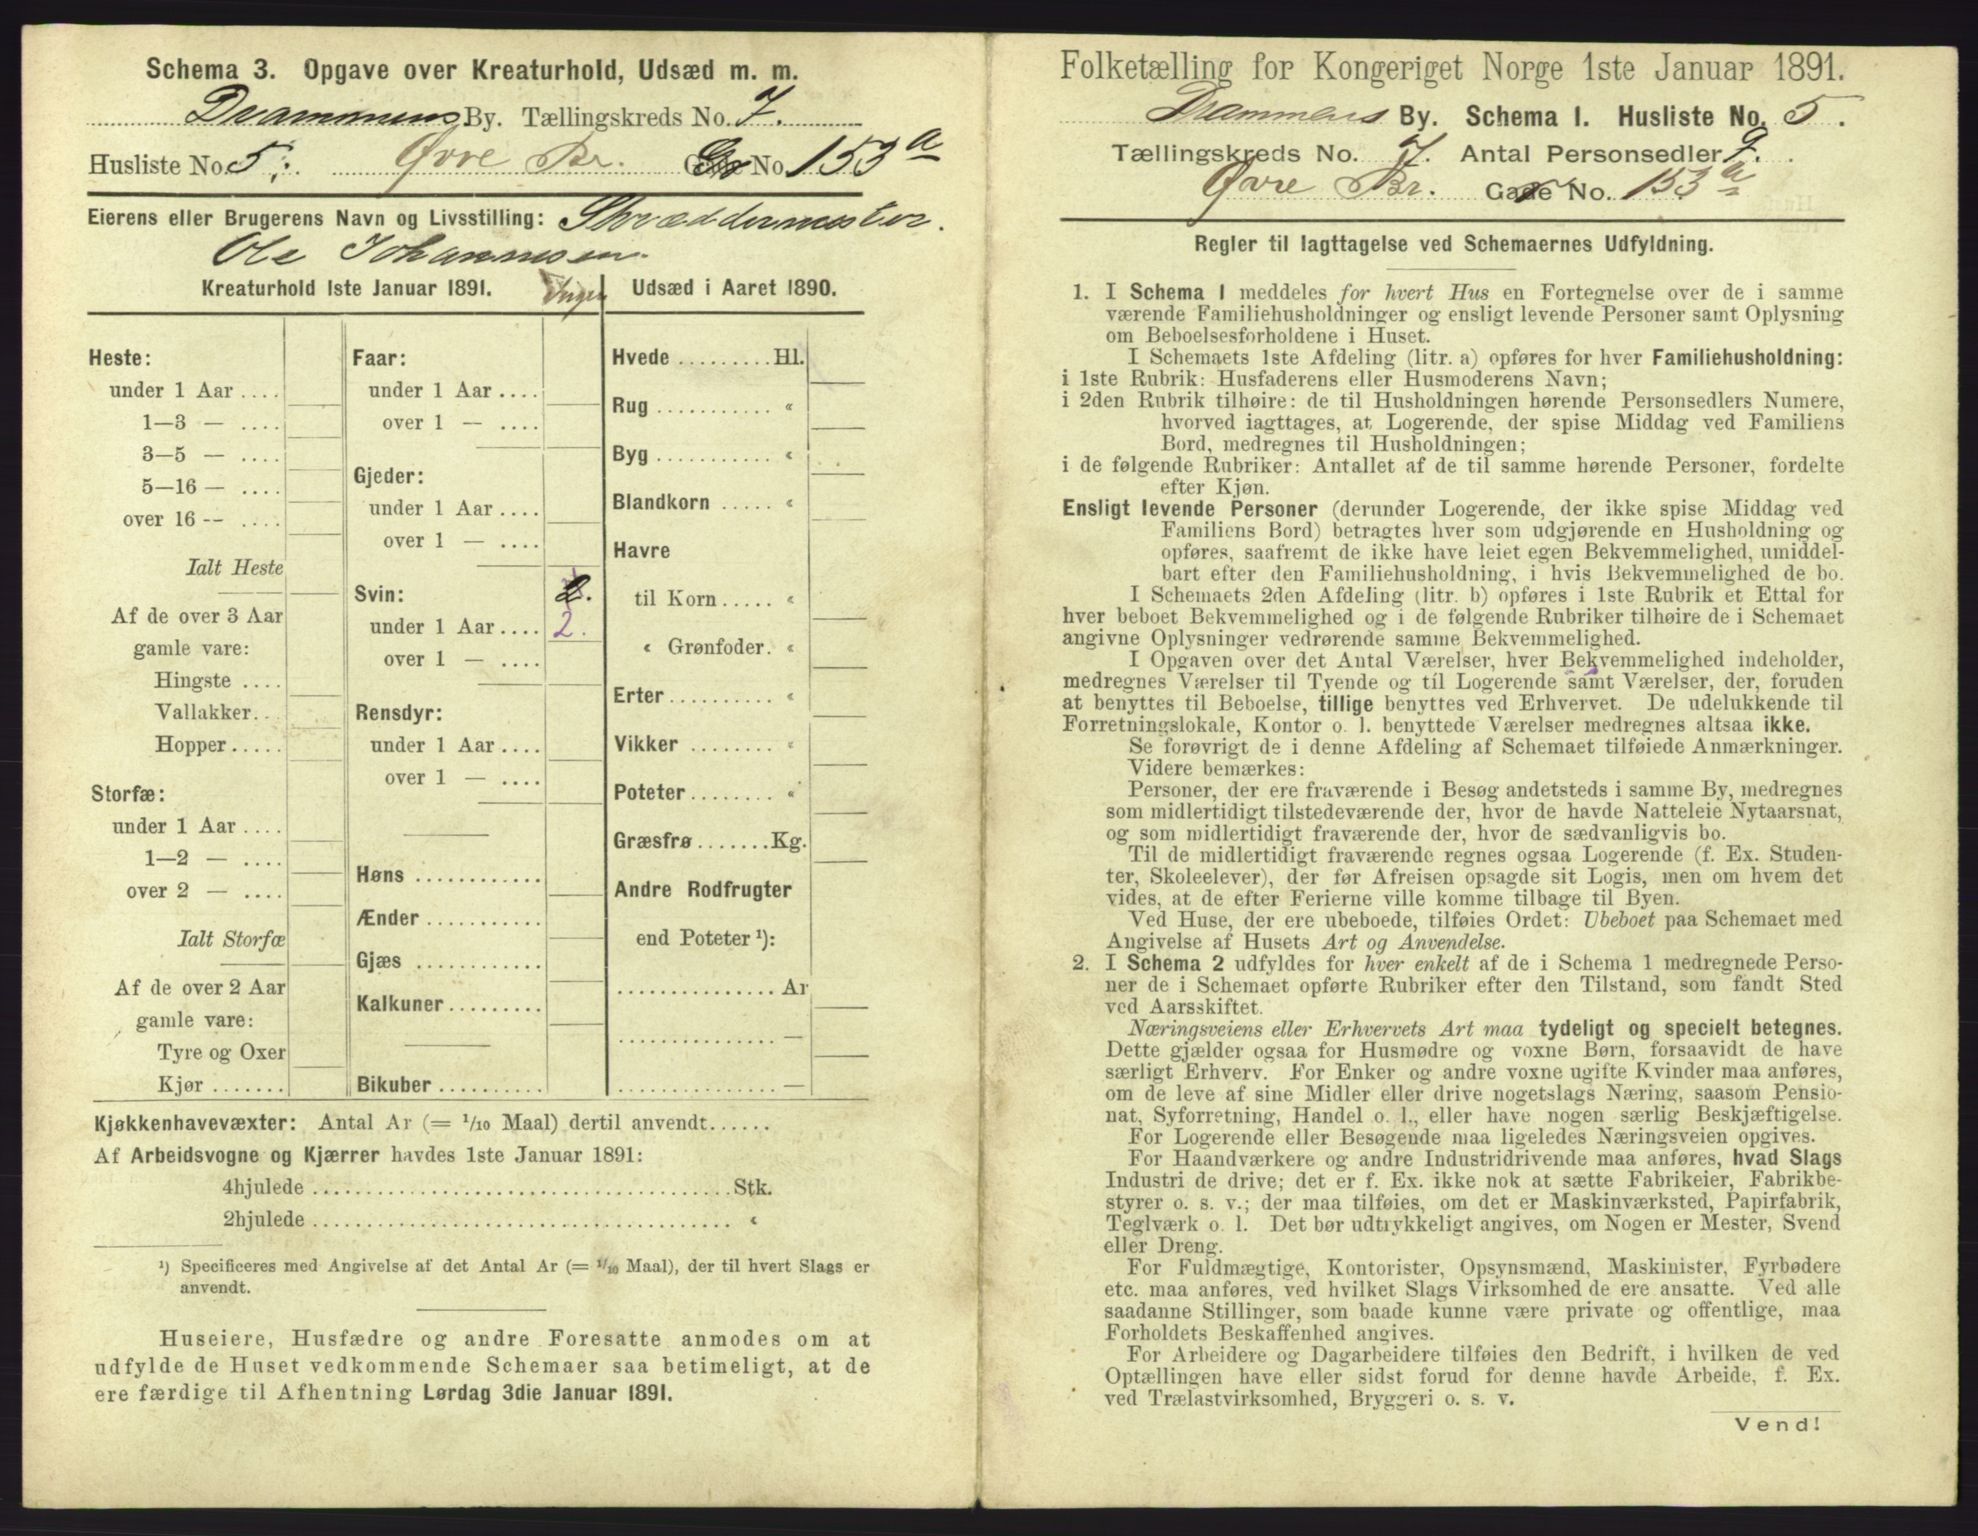 Schema 3. Opgave over Kreaturhold, Udsæd m. m.
Drammens By. Tællingskreds No. 7.
Husliste No. 5. Øvre Br. No. 153 a
Eierens eller Brugerens Navn og Livsstilling: Skræddermester.
Ole Johannesen.
Kreaturhold 1ste Januar 1891. Ingen
Heste:
under 1 Aar ....
1—3 — ....
3—5 — ....
5—16 — ....
over 16 -- ....
Ialt Heste
Af de over 3 Aar
gamle vare:
Hingste ....
Vallakker..
Hopper.....
Storfæ:
under 1 Aar ....
1—2 — ....
over 2 — ....
Ialt Storfæ
Af de over 2 Aar
gamle vare:
Tyre og Oxer
Kjør .......
Faar:
under 1 Aar ....
over 1 — ....
Gjeder:
under 1 Aar ....
over 1 — ....
Svin: 2.
under 1 Aar .... 2.
over 1 — ....
Rensdyr:
under 1 Aar ....
over 1 — ....
Høns ............
Ænder ...........
Gjæs ............
Kalkuner.........
Bikuber ..........
Udsæd i Aaret 1890.
Hvede .........Hl.
Rug ........... «
Byg ........... «
Blandkorn ..... «
Havre
til Korn..... «
« Grønfoder. «
Erter.......... «
Vikker ........ «
Poteter........ «
Græsfrø.......Kg.
Andre Rodfrugter
end Poteter ¹):
............... Ar
............... —
............... —
Kjøkkenhavevæxter: Antal Ar (= 1/10 Maal) dertil anvendt......
Af Arbeidsvogne og Kjærrer havdes 1ste Januar 1891:
4hjulede ....................................... Stk.
2hjulede ....................................... «
¹) Specificeres med Angivelse af det Antal Ar (= 1/10 Maal), der til hvert Slags er
anvendt.
Huseiere, Husfædre og andre Foresatte anmodes om at
udfylde de Huset vedkommende Schemaer saa betimeligt, at de
ere færdige til Afhentning Lørdag 3die Januar 1891.
Folketælling for Kongeriget Norge 1ste Januar 1891.
Drammens By. Schema I. Husliste No. 5.
Tællingskreds No. 7. Antal Personsedler 9.
Øvre Br. Gade No. 153 a
Regler til Iagttagelse ved Schemaernes Udfyldning.
1. I Schema I meddeles for hvert Hus en Fortegnelse over de i samme
værende Familiehusholdninger og ensligt levende Personer samt Oplysning
om Beboelsesforholdene i Huset.
I Schemaets 1ste Afdeling (litr. a) opføres for hver Familiehusholdning:
i 1ste Rubrik: Husfaderens eller Husmoderens Navn;
i 2den Rubrik tilhøire: de til Husholdningen hørende Personsedlers Numere,
hvorved iagttages, at Logerende, der spise Middag ved Familiens
Bord, medregnes til Husholdningen;
i de følgende Rubriker: Antallet af de til samme hørende Personer, fordelte
efter Kjøn.
Ensligt levende Personer (derunder Logerende, der ikke spise Middag ved
Familiens Bord) betragtes hver som udgjørende en Husholdning og
opføres, saafremt de ikke have leiet egen Bekvemmelighed, umiddel-
bart efter den Familiehusholdning, i hvis Bekvemmelighed de bo.
I Schemaets 2den Afdeling (litr. b) opføres i 1ste Rubrik et Ettal for
hver beboet Bekvemmelighed og i de følgende Rubriker tilhøire de i Schemaet
angivne Oplysninger vedrørende samme Bekvemmelighed.
I Opgaven over det Antal Værelser, hver Bekvemmelighed indeholder,
medregnes Værelser til Tyende og til Logerende samt Værelser, der, foruden
at benyttes til Beboelse, tillige benyttes ved Erhvervet. De udelukkende til
Forretningslokale, Kontor o. l. benyttede Værelser medregnes altsaa ikke.
Se forøvrigt de i denne Afdeling af Schemaet tilføiede Anmærkninger.
Videre bemærkes:
Personer, der ere fraværende i Besøg andetsteds i samme By, medregnes
som midlertidigt tilstedeværende der, hvor de havde Natteleie Nytaarsnat,
og som midlertidigt fraværende der, hvor de sædvanligvis bo.
Til de midlertidigt fraværende regnes ogsaa Logerende (f. Ex. Studen-
ter, Skoleelever), der før Afreisen opsagde sit Logis, men om hvem det
vides, at de efter Ferierne ville komme tilbage til Byen.
Ved Huse, der ere ubeboede, tilføies Ordet: Ubeboet paa Schemaet med
Angivelse af Husets Art og Anvendelse.
2. I Schema 2 udfyldes for hver enkelt af de i Schema 1 medregnede Perso-
ner de i Schemaet opførte Rubriker efter den Tilstand, som fandt Sted
ved Aarsskiftet.
Næringsveiens eller Erhvervets Art maa tydeligt og specielt betegnes.
Dette gjælder ogsaa for Husmødre og voxne Børn, forsaavidt de have
særligt Erhverv. For Enker og andre voxne ugifte Kvinder maa anføres,
om de leve af sine Midler eller drive nogetslags Næring, saasom Pensio-
nat, Syforretning, Handel o. l., eller have nogen særlig Beskjæftigelse.
For Logerende eller Besøgende maa ligeledes Næringsveien opgives.
For Haandværkere og andre Industridrivende maa anføres, hvad Slags
Industri de drive; det er f. Ex. ikke nok at sætte Fabrikeier, Fabrikbe-
styrer o. s. v.; der maa tilføies, om det er Maskinværksted, Papirfabrik,
Teglværk o. l. Det bør udtrykkeligt angives, om Nogen er Mester, Svend
eller Dreng.
For Fuldmægtige, Kontorister, Opsynsmænd, Maskinister, Fyrbødere
etc. maa anføres, ved hvilket Slags Virksomhed de ere ansatte. Ved alle
saadanne Stillinger, som baade kunne være private og offentlige, maa
Forholdets Beskaffenhed angives.
For Arbeidere og Dagarbeidere tilføies den Bedrift, i hvilken de ved
Optællingen have eller sidst forud for denne havde Arbeide, f. Ex.
ved Trælastvirksomhed, Bryggeri o. s. v.
Vend!